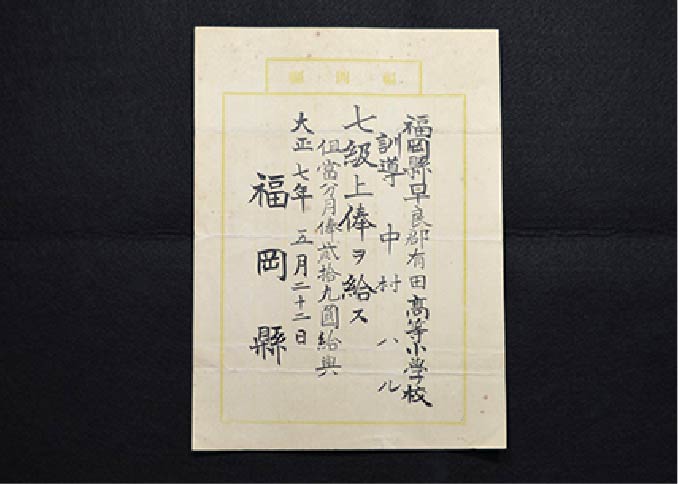 福岡縣
福岡縣早良郡有田高等小学校
訓導 中村ハル
七級上俸ヲ給ス
但當分月俸貳拾九圓給與
大正七年五月二十二日
福岡縣